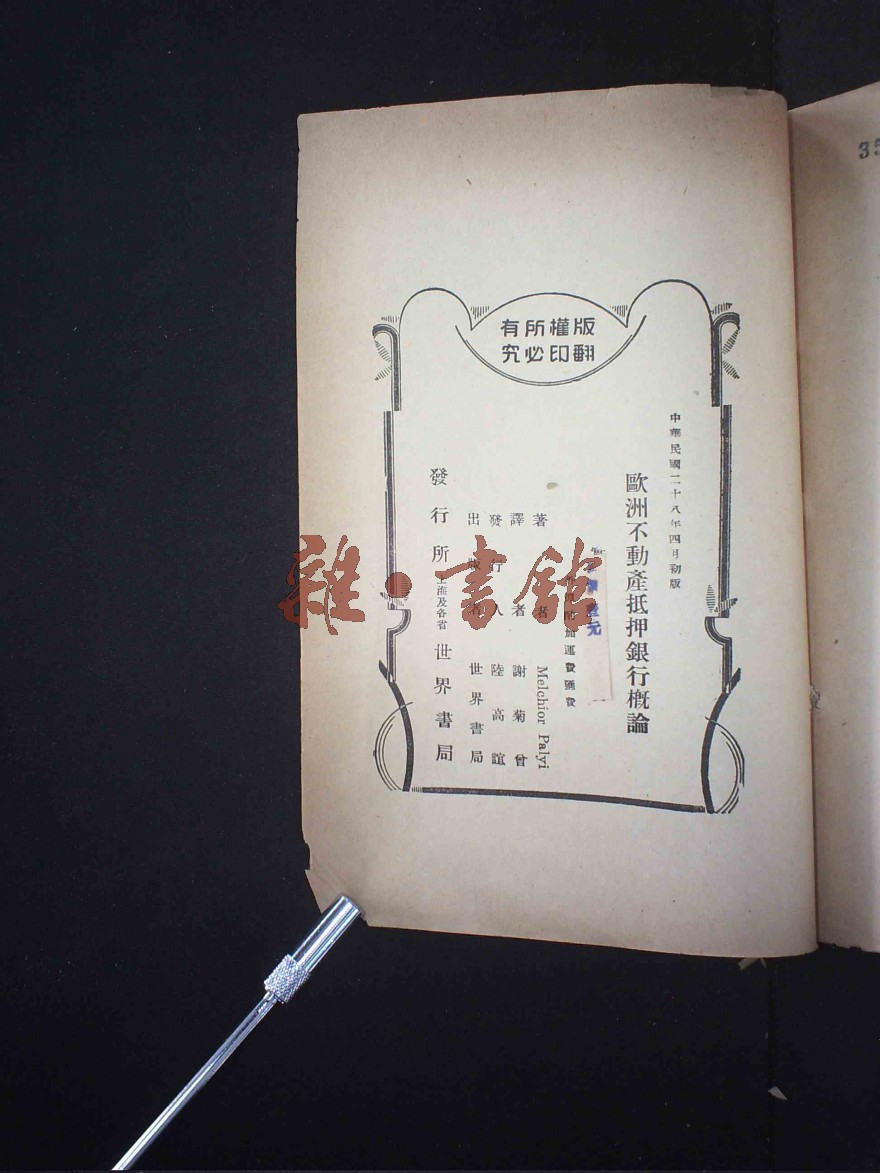 版權所有
翻印必究
中華民國二十八年四月初版
歐洲不動產抵押銀行概論
加運費匯費
元
著者 Melchior Palyi
譯者 謝菊曾
發行人 陸高誼
出版者 世界書局
發行所 上海及各省 世界書局
雜·書館
35